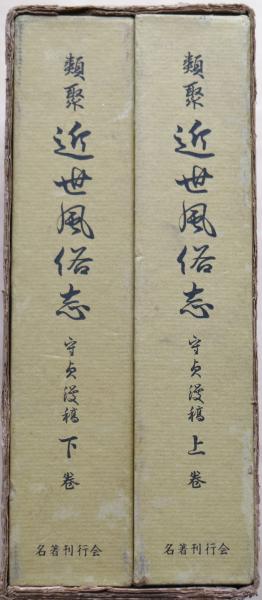 類聚
近世風俗志
守貞漫稿
上巻
名著刊行会
類聚
近世風俗志
守貞漫稿
下巻
名著刊行会